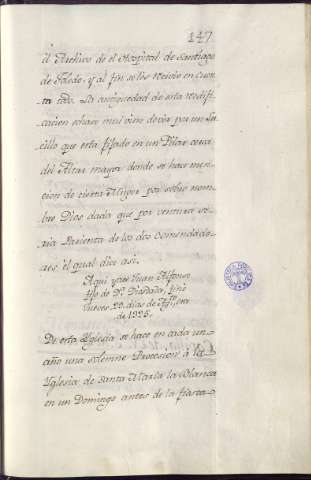 147
el Archivo de el Hospital de Santiago
de Toledo, y al fin se les recivio en cuen
ta todo. La antiguedad de esta reedifi
cacion se hace mui bien decir por un Le
cillo que esta fijado en un Pilar cerca
del Altar mayor donde se hace men
cion de cierta Muger por sobre nom
bre Dios dada que por ventura se
ria Parienta de los dos Comendado
res, el qual dice asi.
Aqui yace Juan Alfonso
fijo de Dª Diosdada, fino
Jueves 22 dias de
de
De esta Yglesia se hace en cada un
año una solemne Procesion à la
Yglesia de Santa Maria la Blanca
en un Domingo antes de la fiesta